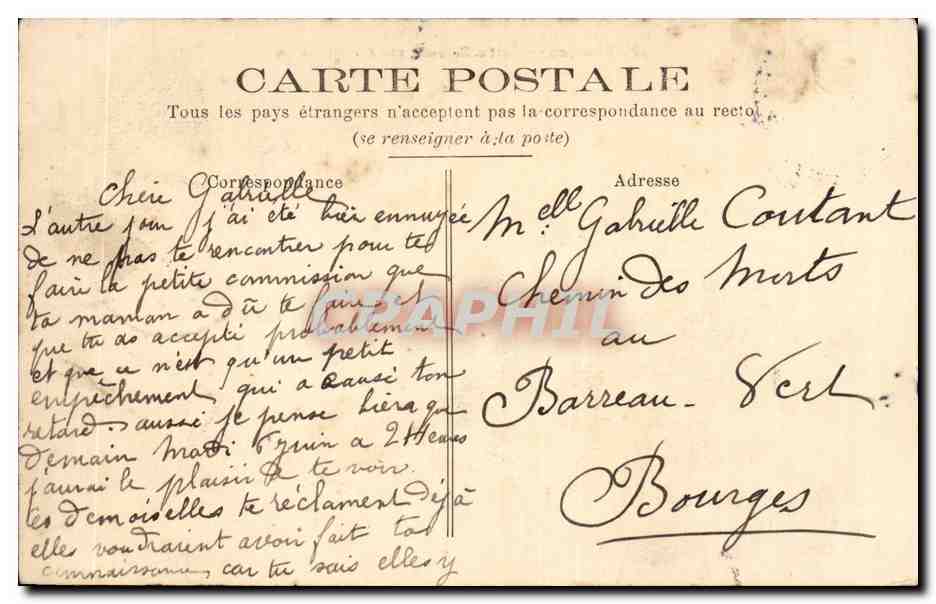 CARTE POSTALE
Tous les pays étrangers n'acceptent pas la correspondance au recto
(se renseigner à la poste)
Correspondance
Chère Gabrielle
L'autre jour j'ai été bien ennuyée
de ne pas te rencontrer pour te
faire la petite commission que
ta maman a dû te faire et
que tu as accepté probablement
et que ce n'est qu'un petit
empêchement qui a causé ton
retard. aussi je pense bien que
demain Mardi 6 juin a 2 Heures
j'aurai le plaisir de te voir.
les demoiselles te réclament déjà
elles voudraient avoir fait ta
connaissance, car tu sais elles y
Adresse
Melle Gabrielle Coutant
Chemin des Morts
au
Barreau-Vert
Bourges
CPAPHIL